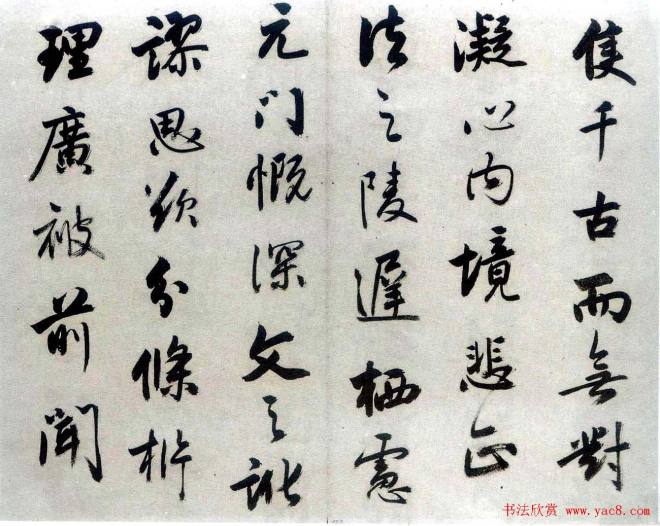 隻千古而無對
凝心内境悲正
法之陵遲栖慮
元门慨深文之訛
謬思欲分條析
理廣被前聞
书法欣赏 www.yac8.com